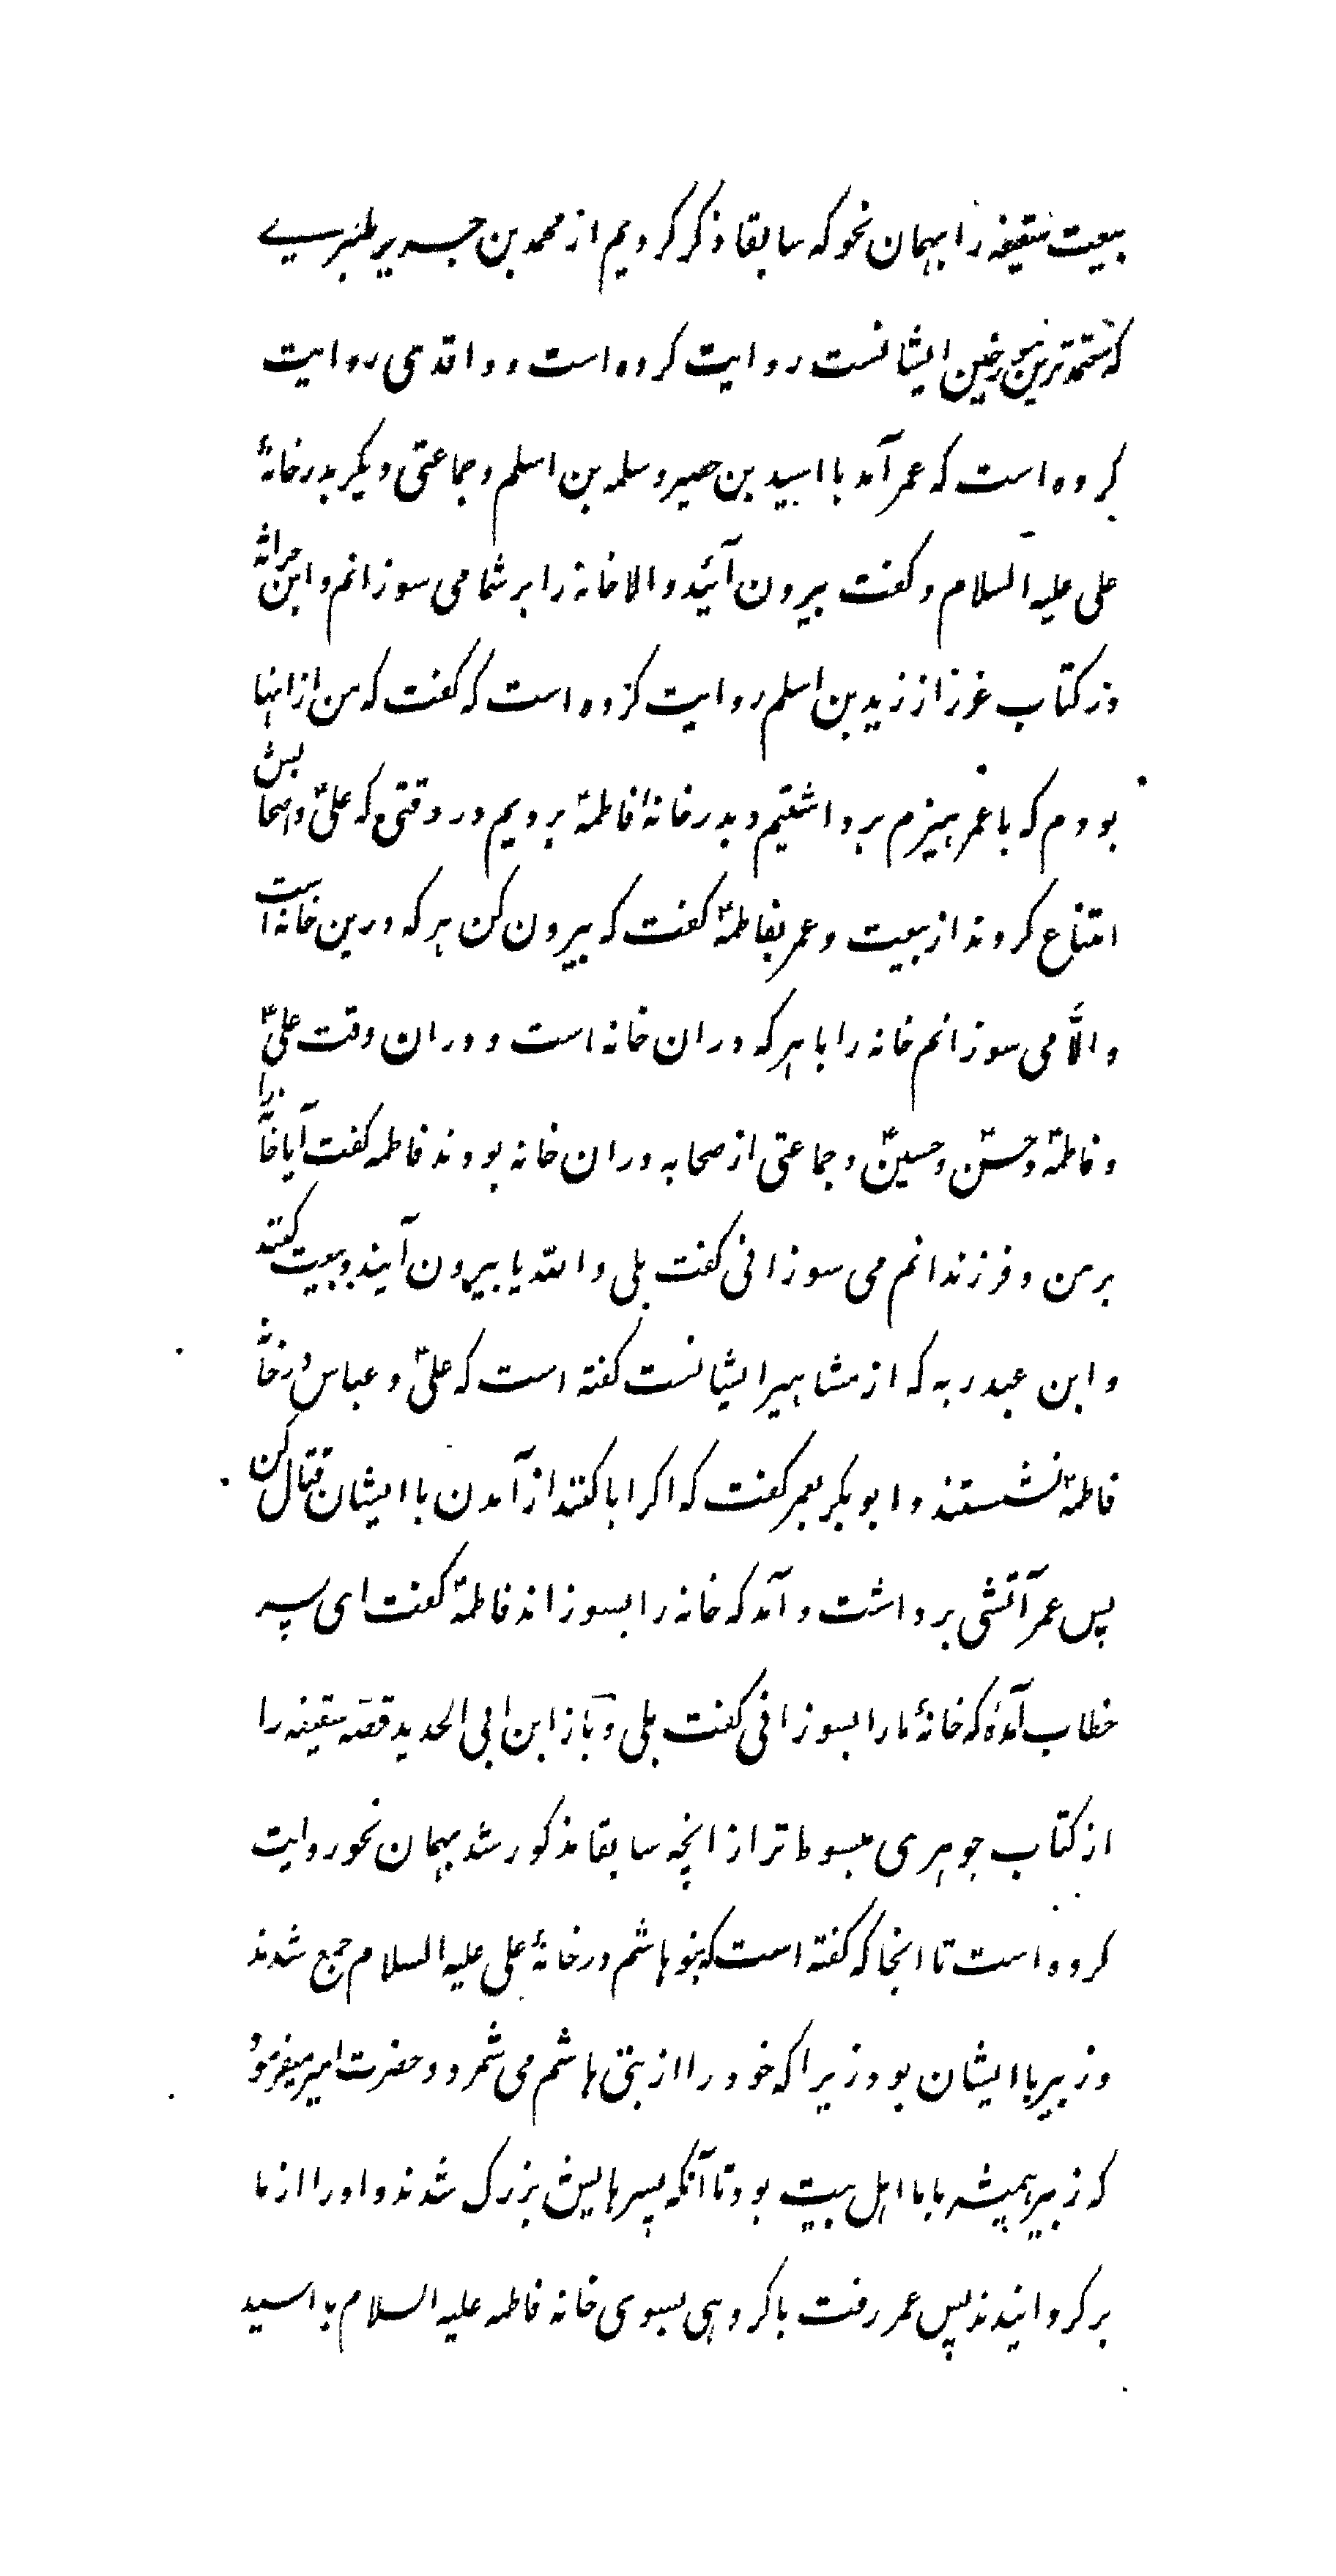 بیعت سقیفه را بهمان نحو که سابقا ذکر کردیم از محمد بن جریر طبری
که معتمدترین مورخین ایشانست روایت کرده است و واقدی روایت
کرده است که عمر آمد با اسید بن حصیر و سلمه بن اسلم و جماعتی دیکر بدر خانهٔ
علی علیه السلام و کفت بیرون آئید و الا خانه را بر شما می سوزانم و ابن خرابه
در کتاب غرر از زید بن اسلم روایت کرده است که کفت که من از انها
بودم که با عمر هیزم برداشتیم و بدر خانهٔ فاطمهؑ بردیم در وقتی که علیؑ و اصحابش
امتناع کردند از بیعت و عمر بفاطمهؑ کفت که بیرون کن هر که درین خانه است
و الّا می سوزانم خانه را با هر که در ان خانه است و در ان وقت علیؑ
و فاطمهؑ و حسنؑ و حسینؑ و جماعتی از صحابه در ان خانه بودند فاطمه کفت آیا خانه را
بر من و فرزندانم می سوزانی کفت بلی و الله یا بیرون آیند و بیعت کنند
و ابن عبد ربه که از مشاهیر ایشانست کفته است که علیؑ و عباس در خانهٔ
فاطمهؑ نشستند و ابوبکر بعمر کفت که اکر ابا کنند از آمدن با ایشان قتال کن
پس عمر آتشی برداشت و آمد که خانه را بسوزاند فاطمهؑ کفت ای پسر
خطاب آمدهٔ که خانهٔ ما را بسوزانی کفت بلی و باز ابن ابی الحدید قصه سقیفه را
از کتاب جوهری مبسوط تر از انچه سابقا مذکور شد بهمان نحو روایت
کرده است تا انجا که کفته است که بنو هاشم در خانهٔ علی علیه السلام جمع شدند
و زبیر با ایشان بود زیرا که خود را از بنی هاشم می شمرد و حضرت امیر میفرمود
که زبیر همیشه با ما اهل بیت بود تا آنکه پسرهایش بزرک شدند و او را از ما
بر کردانیدند پس عمر رفت با کروهی بسوی خانه فاطمه علیه السلام با اسید